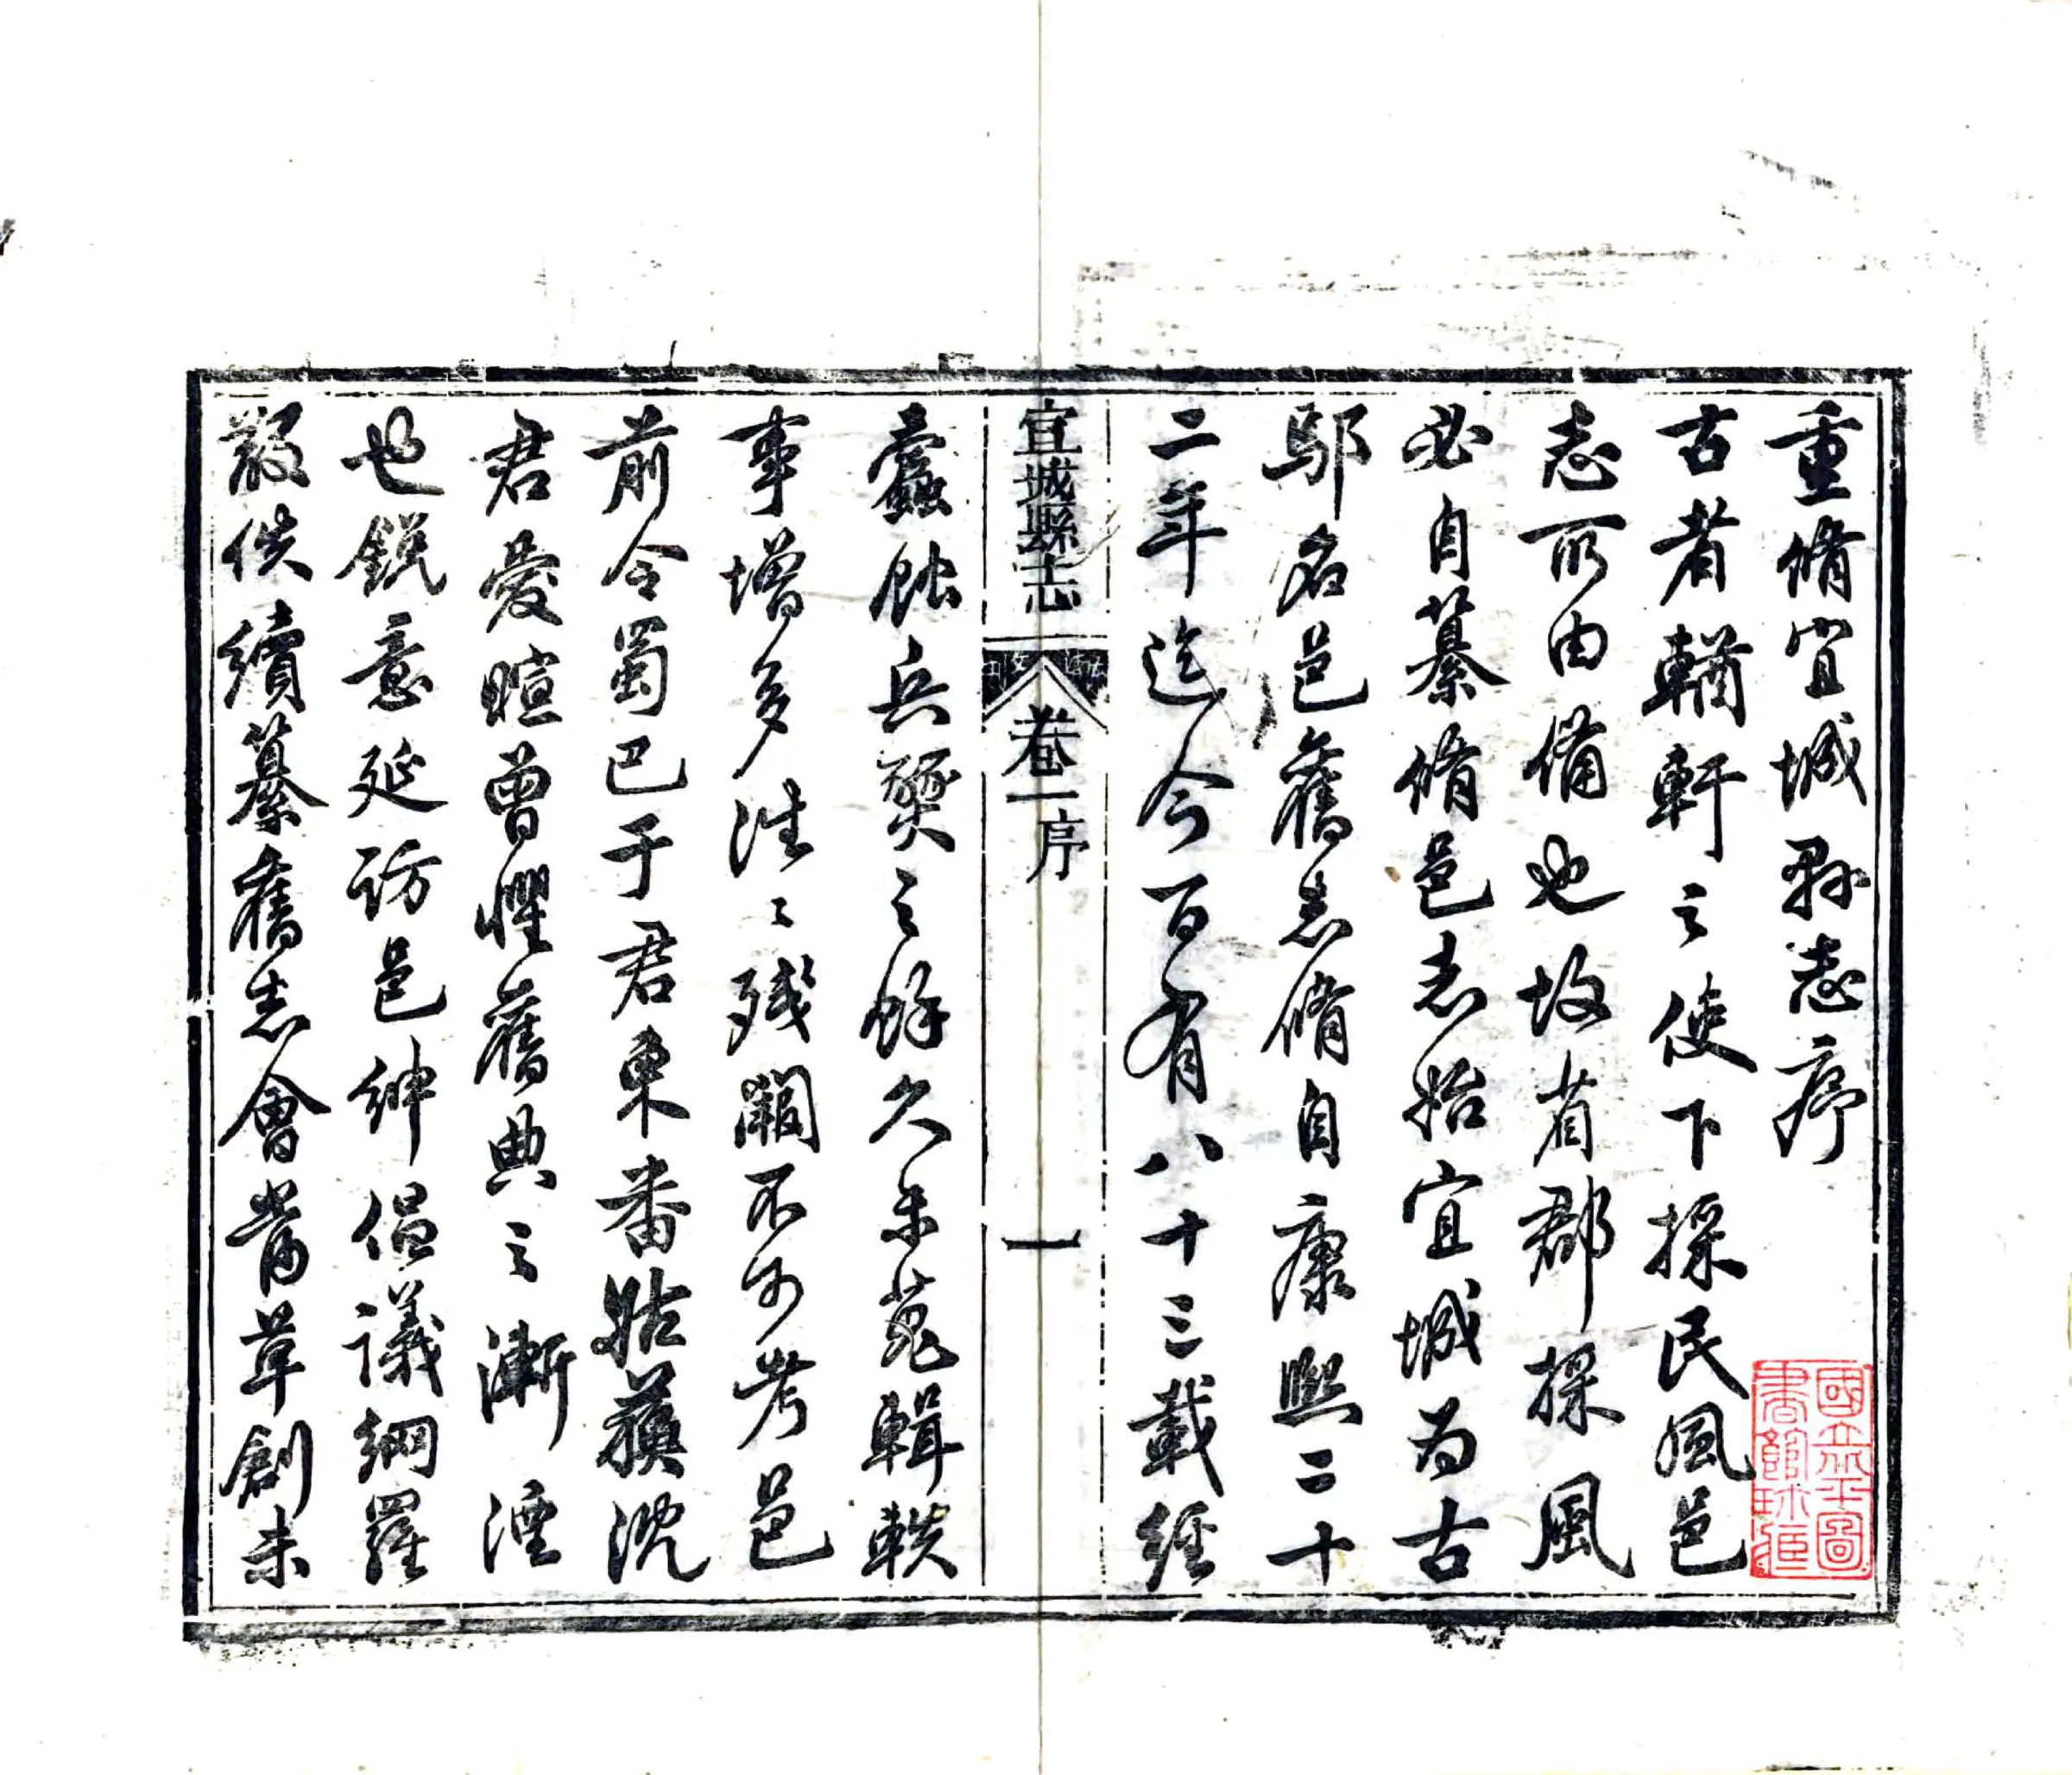 重脩宜城縣志序
古者輶軒之使下採民風邑
志所由備也故省郡採風
必自纂脩邑志始宜城為古
鄢名邑舊志脩自康熙二十
二年迄今百有八十三載經
宜城縣志 卷一序 一
蠹蝕兵燹之餘久未蒐輯軼
事增多往々殘闕不可考邑
前令蜀巴于君東番姑蘓沈
君愛暄曾懼舊典之漸湮
也銳意延訪邑紳倡議網羅
散佚續纂舊志會當草創未
國立北平圖書館珍藏